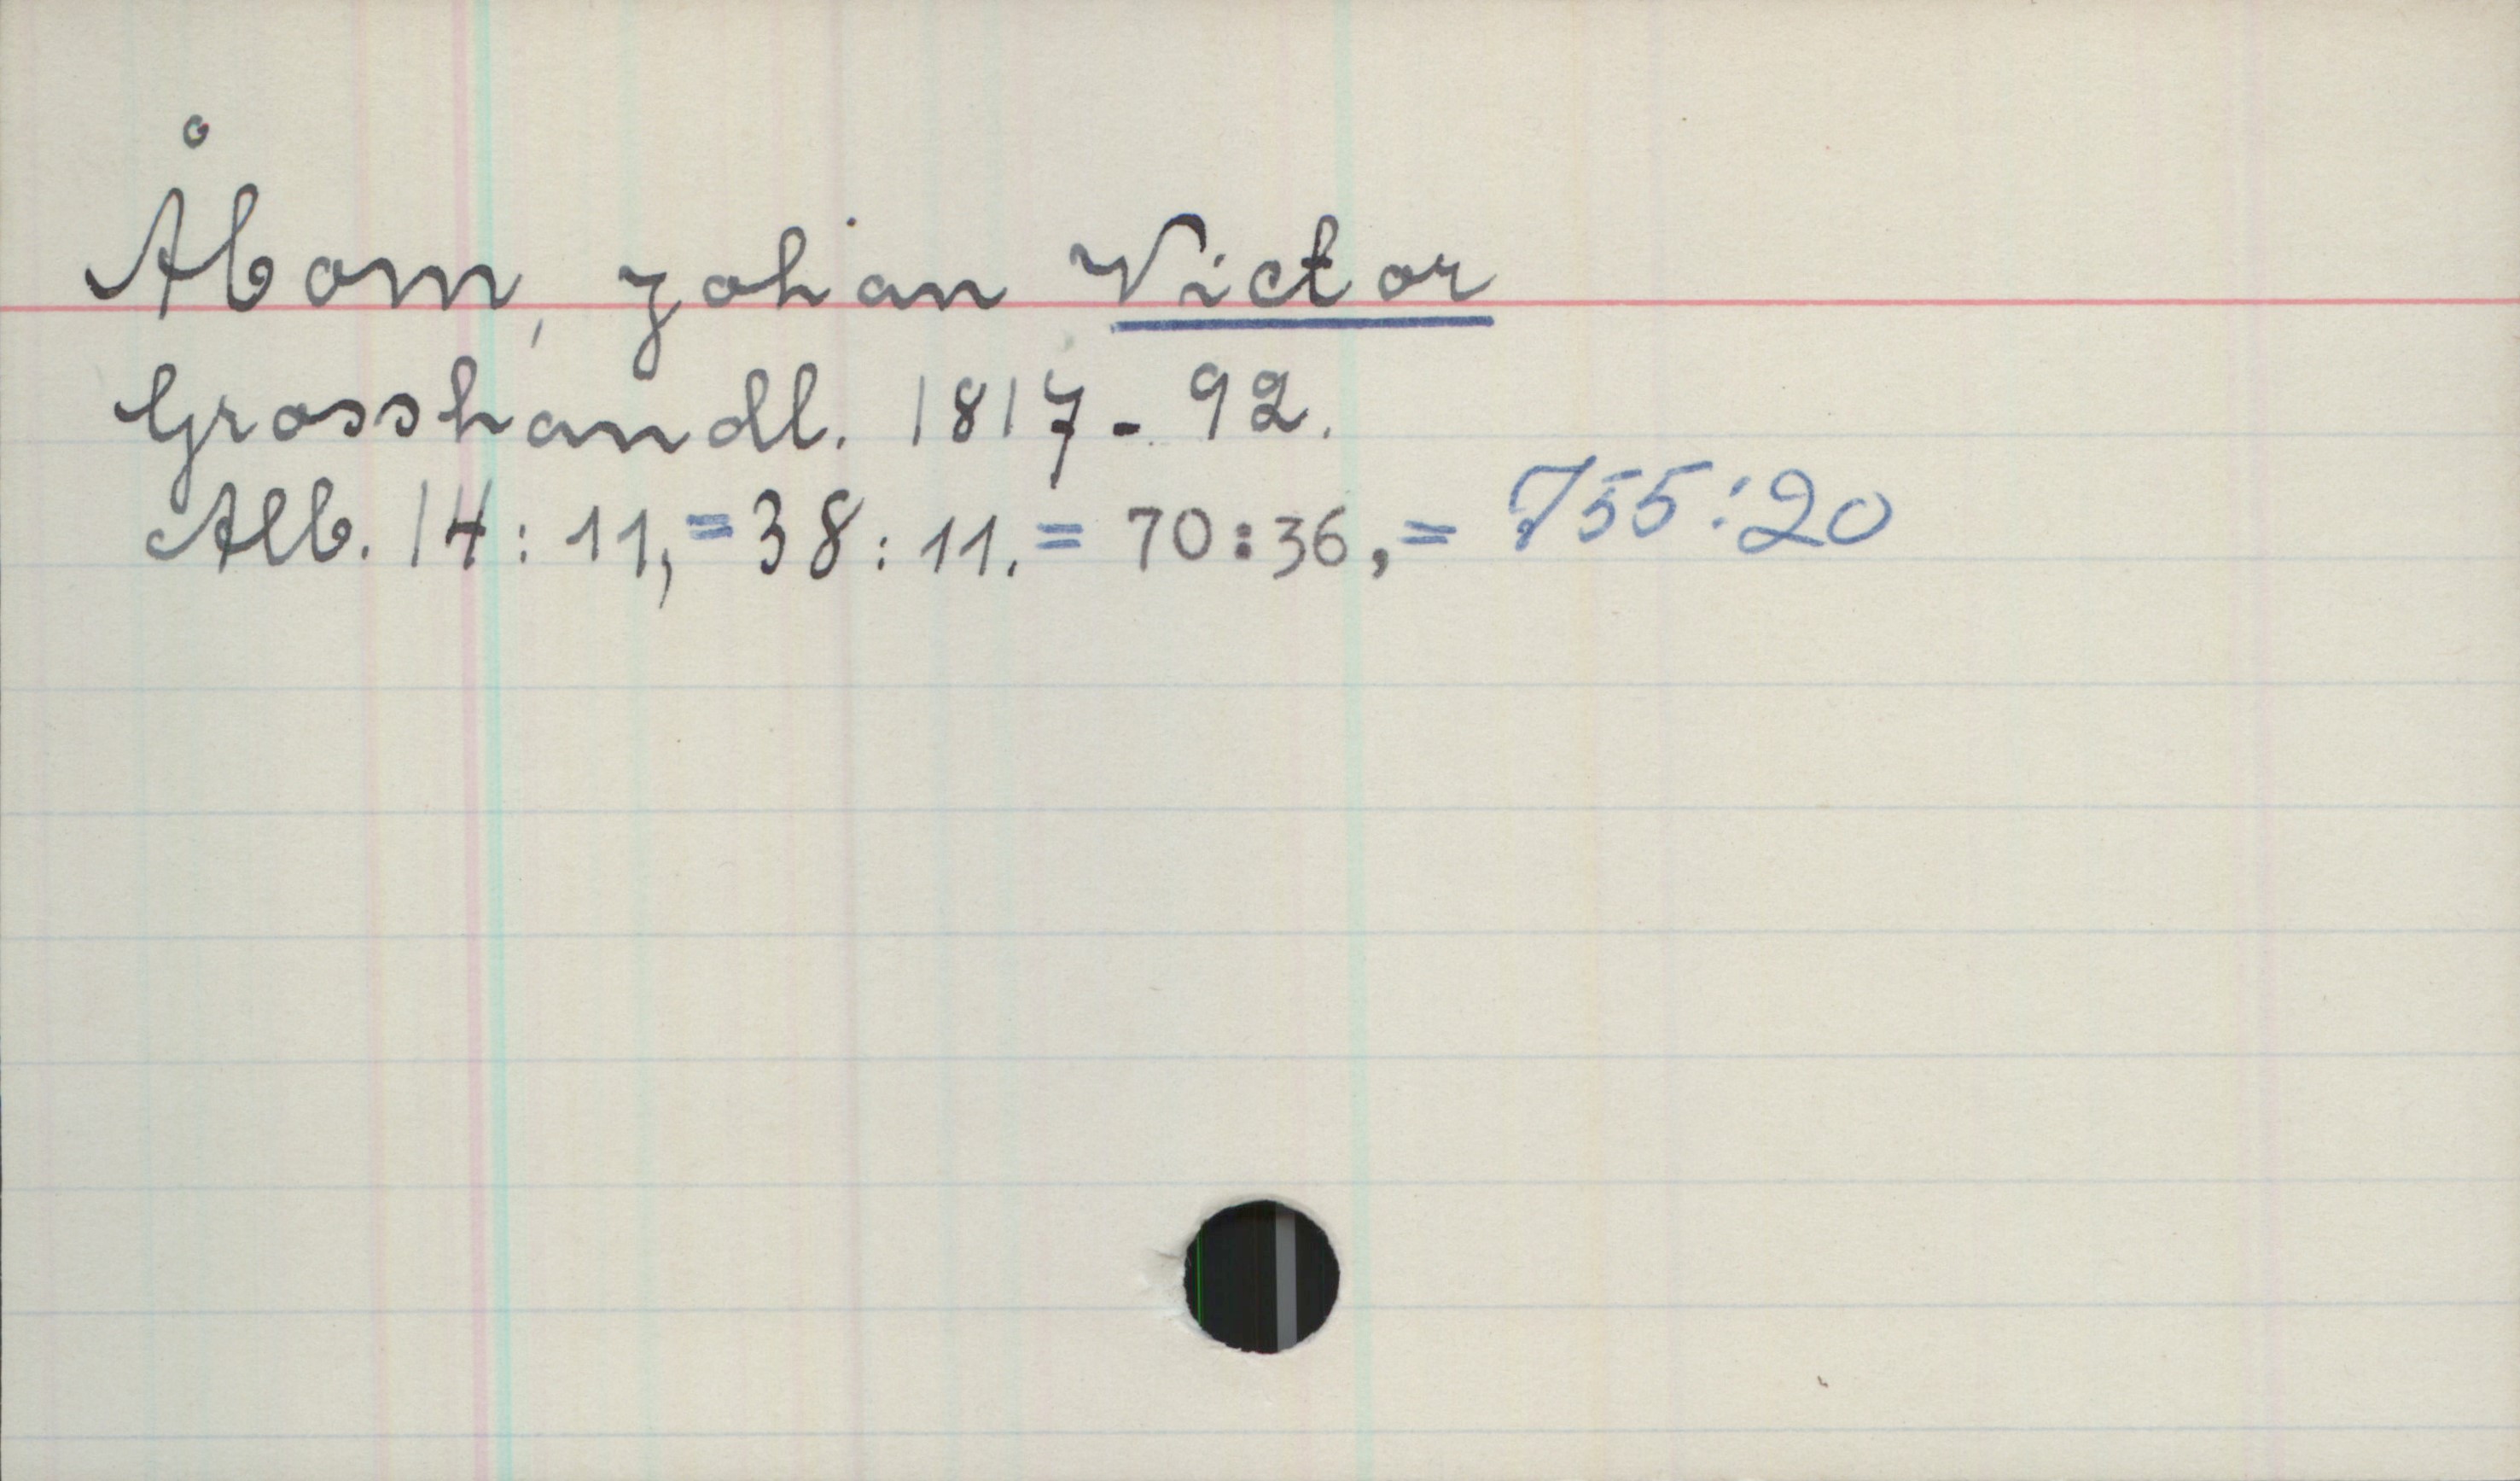 Åbom, Johan Victor
Grosshandl. 1817-92.
Alb. 14:11,=38:11.= 70:36,= 755:20